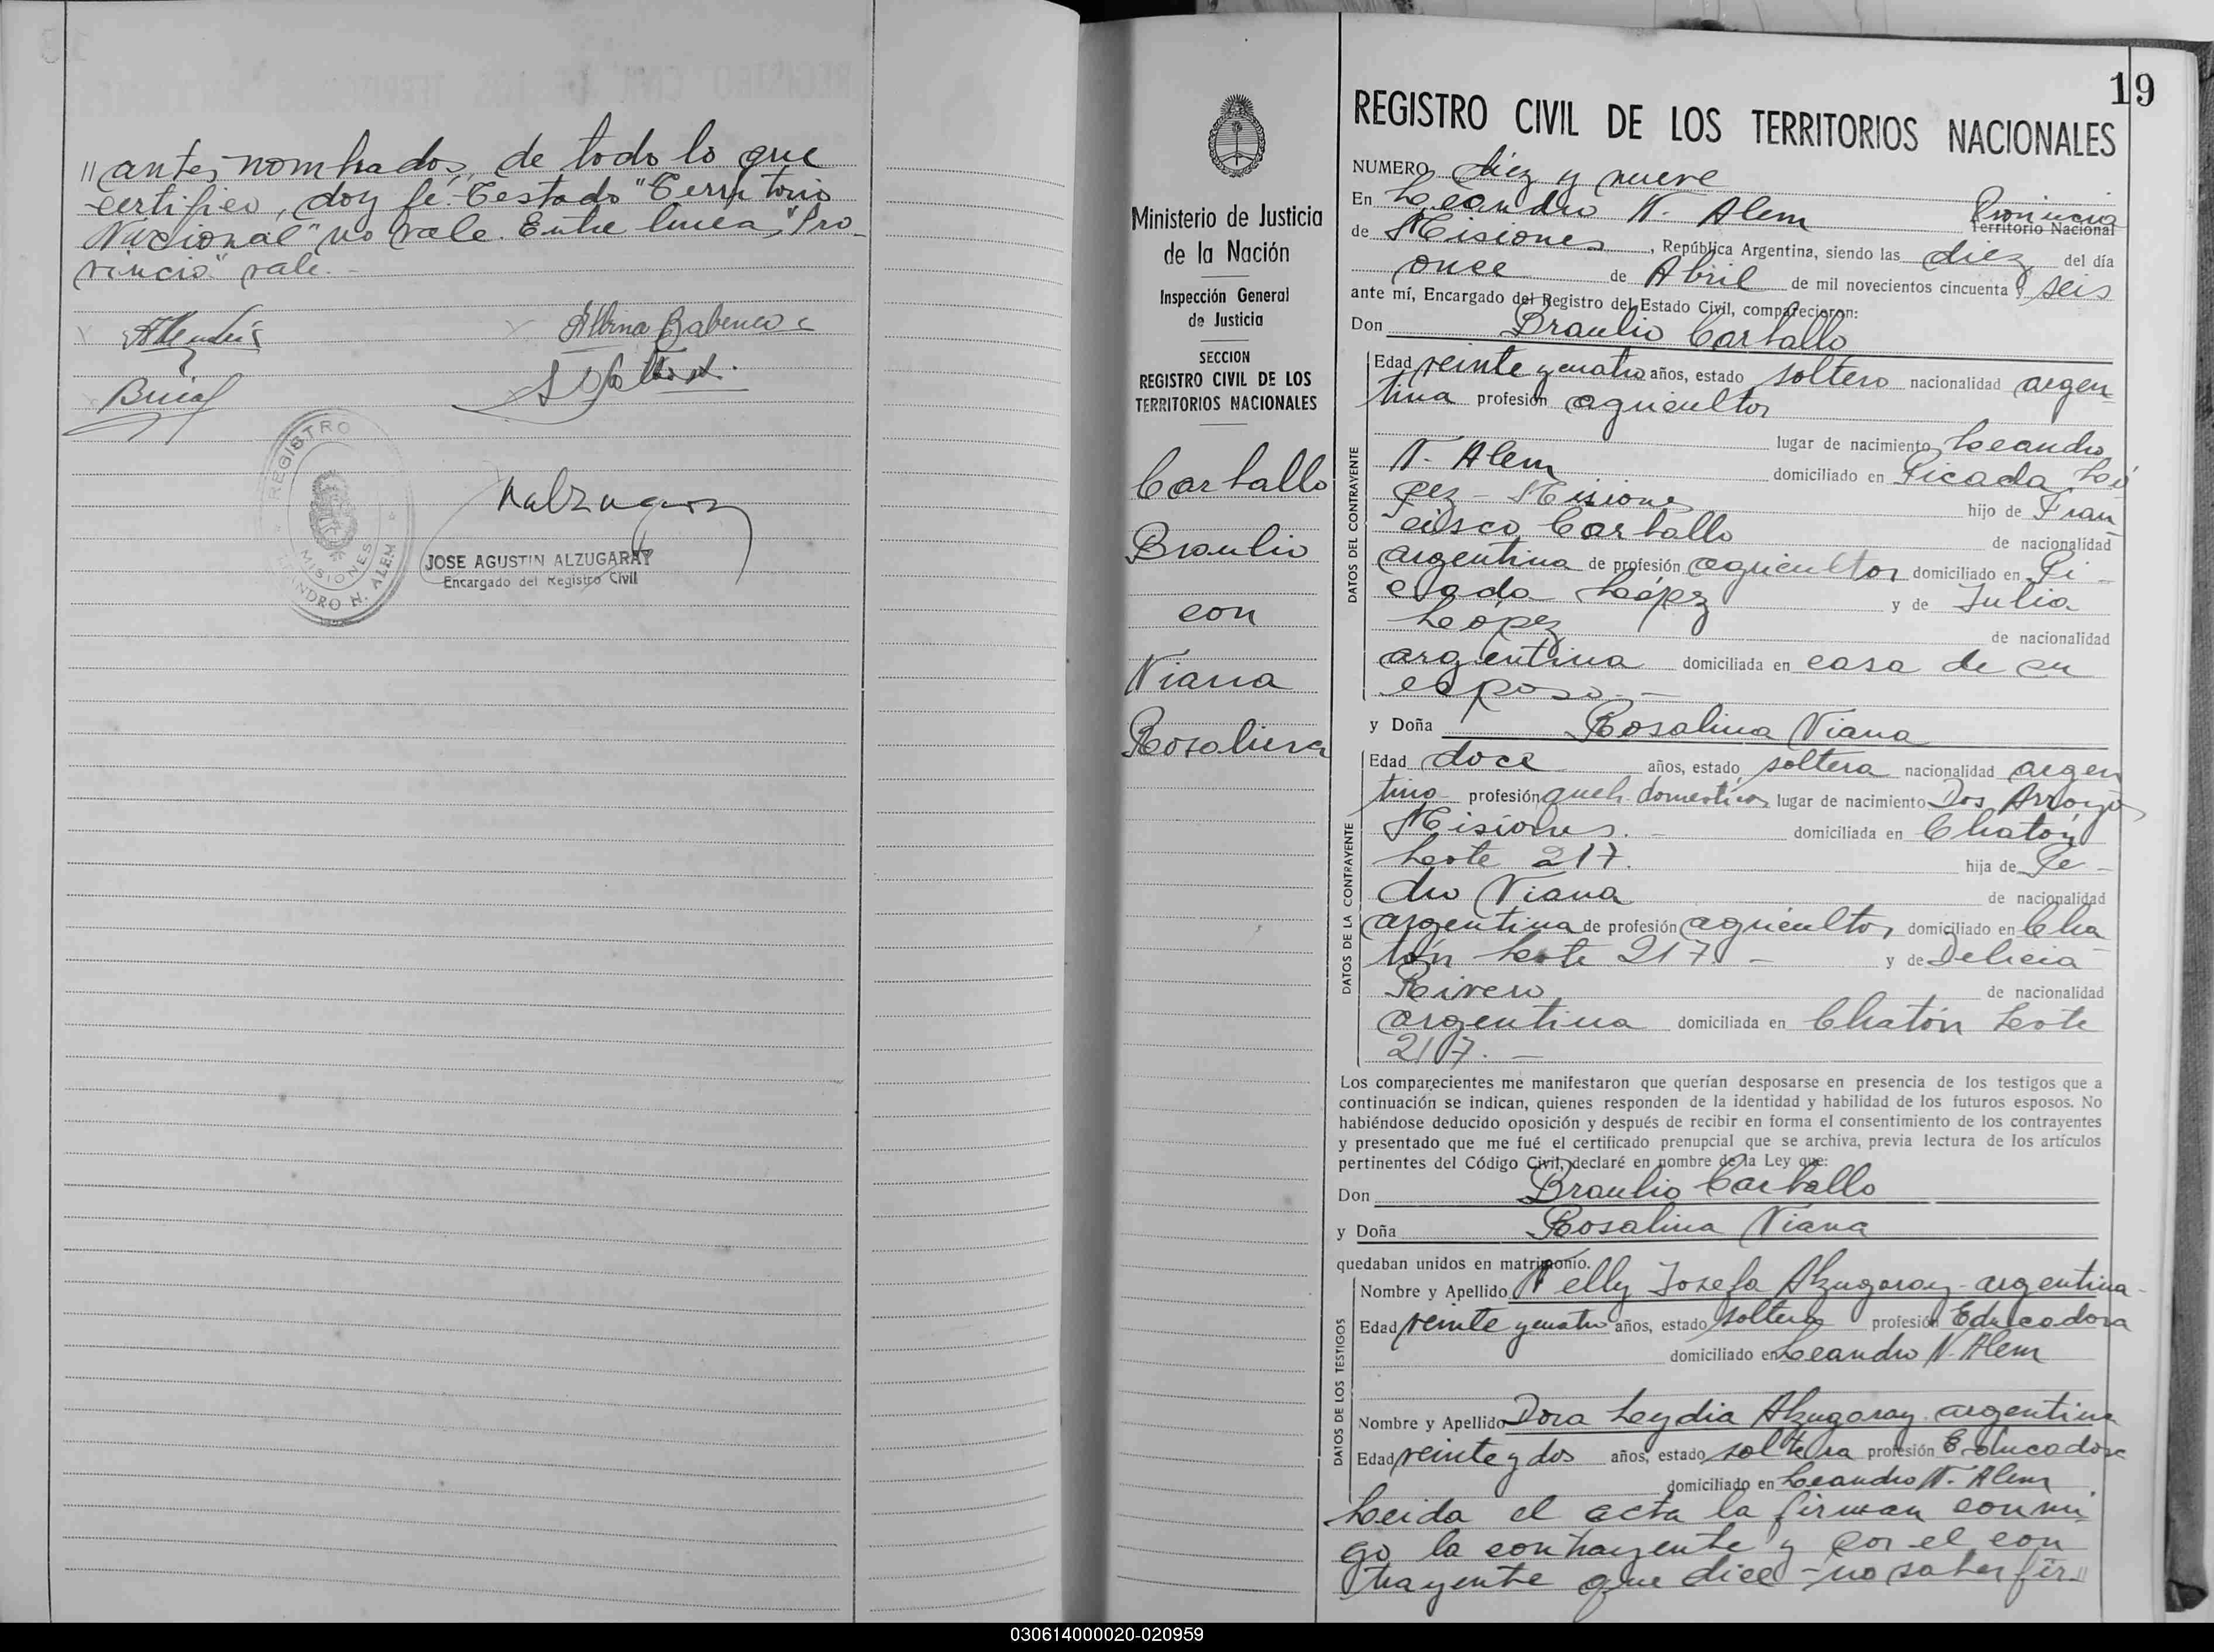 "antes nombrados, de todo lo que
certifico, doy fé.- Testado "Territorio
Nacional" no vale. Entre linea, "Pro-
vincia" vale.-
Albina Babenco
REGISTRO
MISIONES
LEANDRO N. ALEM
JOSE AGUSTIN ALZUGARAY
Encargado del Registro Civil
19
Ministerio de Justicia
de la Nación
Inspección General
de Justicia
SECCION
REGISTRO CIVIL DE LOS
TERRITORIOS NACIONALES
Carballo
Braulio
con
Viana
Rosalina
REGISTRO CIVIL DE LOS TERRITORIOS NACIONALES
NUMERO diez y nueve
En Leandro N. Alem Provincia Territorio Nacional
de Misiones, República Argentina, siendo las diez del día
once de Abril de mil novecientos cincuenta y seis
ante mí, Encargado del Registro del Estado Civil, comparecieron:
Don Braulio Carballo
DATOS DEL CONTRAYENTE
Edad veinte y cuatro años, estado soltero nacionalidad argen
tina profesión agricultor
lugar de nacimiento Leandro
N. Alem domiciliado en Picada Ló
pez - Misiones hijo de Fran
cisco Carballo de nacionalidad
argentina de profesión agricultor domiciliado en Pi-
cada López y de Julia
López de nacionalidad
argentina domiciliada en casa de su
esposo.-
y Doña Rosalina Viana
DATOS DE LA CONTRAYENTE
Edad doce años, estado soltera nacionalidad argen
tina profesión queh. domésticos lugar de nacimiento Dos Arroyos
Misiones.- domiciliada en Chatón
Lote 217. hija de Pe-
dro Viana de nacionalidad
argentina de profesión agricultor domiciliado en Cha
tón Lote 217 - y de Delicia
Rivero de nacionalidad
argentina domiciliada en Chatón Lote
217.-
Los comparecientes me manifestaron que querían desposarse en presencia de los testigos que a
continuación se indican, quienes responden de la identidad y habilidad de los futuros esposos. No
habiéndose deducido oposición y después de recibir en forma el consentimiento de los contrayentes
y presentado que me fué el certificado prenupcial que se archiva, previa lectura de los artículos
pertinentes del Código Civil, declaré en nombre de la Ley que:
Don Braulio Carballo
y Doña Rosalina Viana
quedaban unidos en matrimonio.
DATOS DE LOS TESTIGOS
Nombre y Apellido Nelly Josefa Alzugaray - argentina-
Edad veinte y cuatro años, estado soltera profesión Educadora
domiciliado en Leandro N. Alem
Nombre y Apellido Dora Leydia Alzugaray argentina
Edad veinte y dos años, estado soltera profesión Educadora
domiciliado en Leandro N. Alem
Leida el acta la firman conmi
go la contrayente y por el con
trayente que dice no saber fir"
030614000020-020959